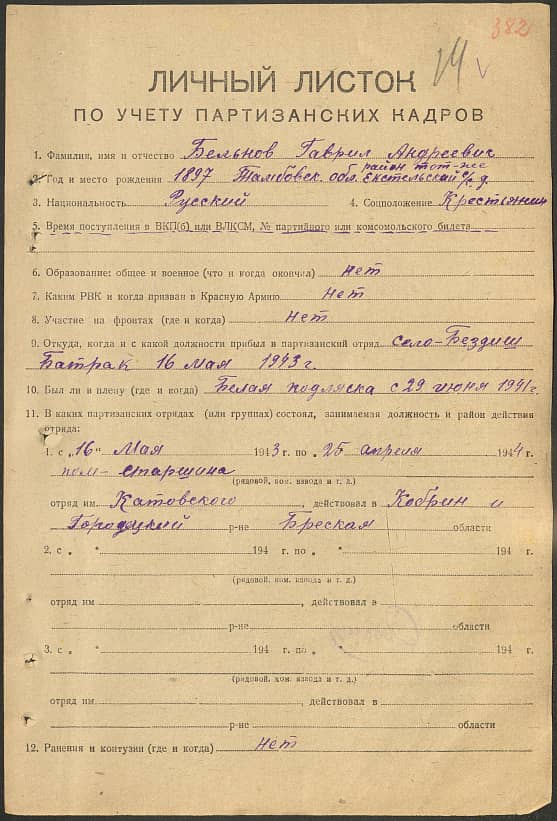 382
ЛИЧНЫЙ ЛИСТОК
ПО УЧЕТУ ПАРТИЗАНСКИХ КАДРОВ
1. Фамилия, имя и отчество Бельнов Гаврил Андреевич
2. Год и место рождения 1897 Тамбовск. обл. район тот-же
3. Национальность Русский 4. Соцположение Крестьянин
5. Время поступления в ВКП(б) или ВЛКСМ, № партийного или комсомольского билета
6. Образование: общее и военное (что и когда окончил) нет
7. Каким РВК и когда призван в Красную Армию нет
8. Участие на фронтах (где и когда) нет
9. Откуда, когда и с какой должности прибыл в партизанский отряд село-Бездиш
Батрак 16 мая 1943 г.
10. Был ли в плену (где и когда) Белая подляска с 29 июня 1941 г.
11. В каких партизанских отрядах (или группах) состоял, занимаемая должность и район действия
отряда:
1. с „16" Мая 1943 г. по „ 25 апреля 1944 г.
пом-старшина
(рядовой, ком. взвода и т. д.)
отряд им. Катовского, действовал в Кобрин и
Городецкий р-не Бреская области
2. с „ " 194 г. по „ " 194 г.
(рядовой, ком. взвода и т. д.)
отряд им , действовал в
р-не области
3. с „ " 194 г. по „ " 194 г.
(рядовой, ком. взвода и т. д.)
отряд им , действовал в
р-не области
12. Ранения и контузии (где и когда) нет